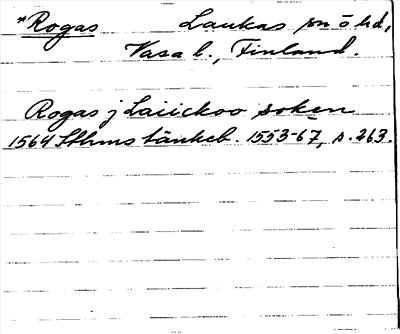 *Rogas Laukas sn o hd,
Vasa l., Finland.
Rogas j Laiickoo soken
1564 Sthms tänkeb. 1553-67, s. 263.